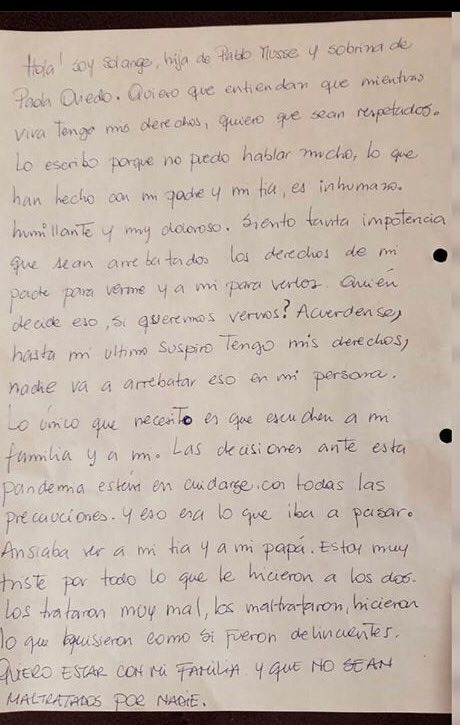 Hola! soy Solange, hija de Pablo Musse y sobrina de
Paola Oviedo. Quiero que entiendan que mientras
viva Tengo mis derechos, quiero que sean respetados.
Lo escribo porque no puedo hablar mucho, lo que
han hecho con mi padre y mi tia, es inhumano.
humillante y muy doloroso. Siento tanta impotencia
que sean arrebatados los derechos de mi
padre para verme y a mi para verlos. Quién
decide eso, si queremos vernos? Acuerdense,
hasta mi ultimo suspiro Tengo mis derechos,
nadie va a arrebatar eso en mi persona.
Lo único que necesito es que escuchen a mi
familia y a mi. Las decisiones ante esta
pandemia están en cuidarse, con todas las
precauciones. Y eso era lo que iba a pasar.
Ansiaba ver a mi tia y a mi papá. Estoy muy
triste por todo lo que le hicieron a los dos.
Los trataron muy mal, los maltrataron, hicieron
lo que quisieron como si fueron delincuentes.
QUIERO ESTAR CON MI FAMILIA Y QUE NO SEAN
MALTRATADOS POR NADIE.